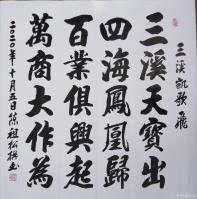 三溪凱歌飛
三溪天寶出
四海鳳凰歸
百業俱興起
萬商大作為
二〇二〇年十月五日陈祖松撰書